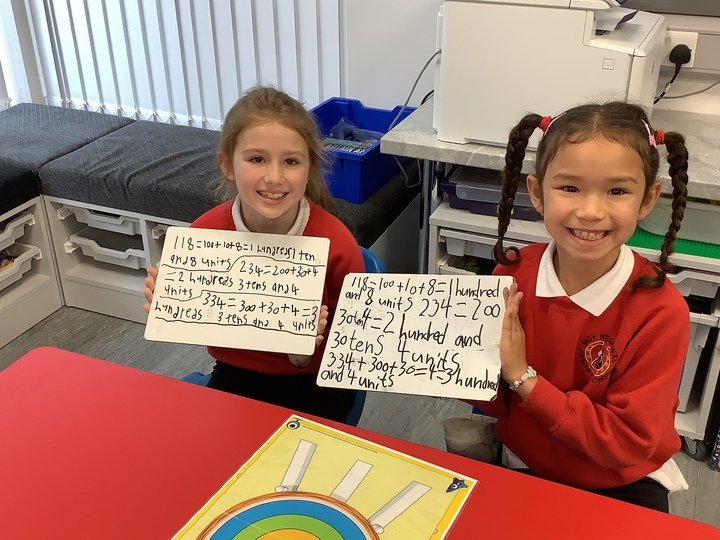 118=100+10+8=1 hundreds1ten
and8 units 234=200+30+4
=2 hundreds 3tens and 4
units 334=300+30+4=3
hundreds 3 tens and 4 units
118=100+10+8=1hundred
and 8 units 234=200
30to4=2 hundred and
30tens 4units
334+300+30=4=3hundred
and 4units